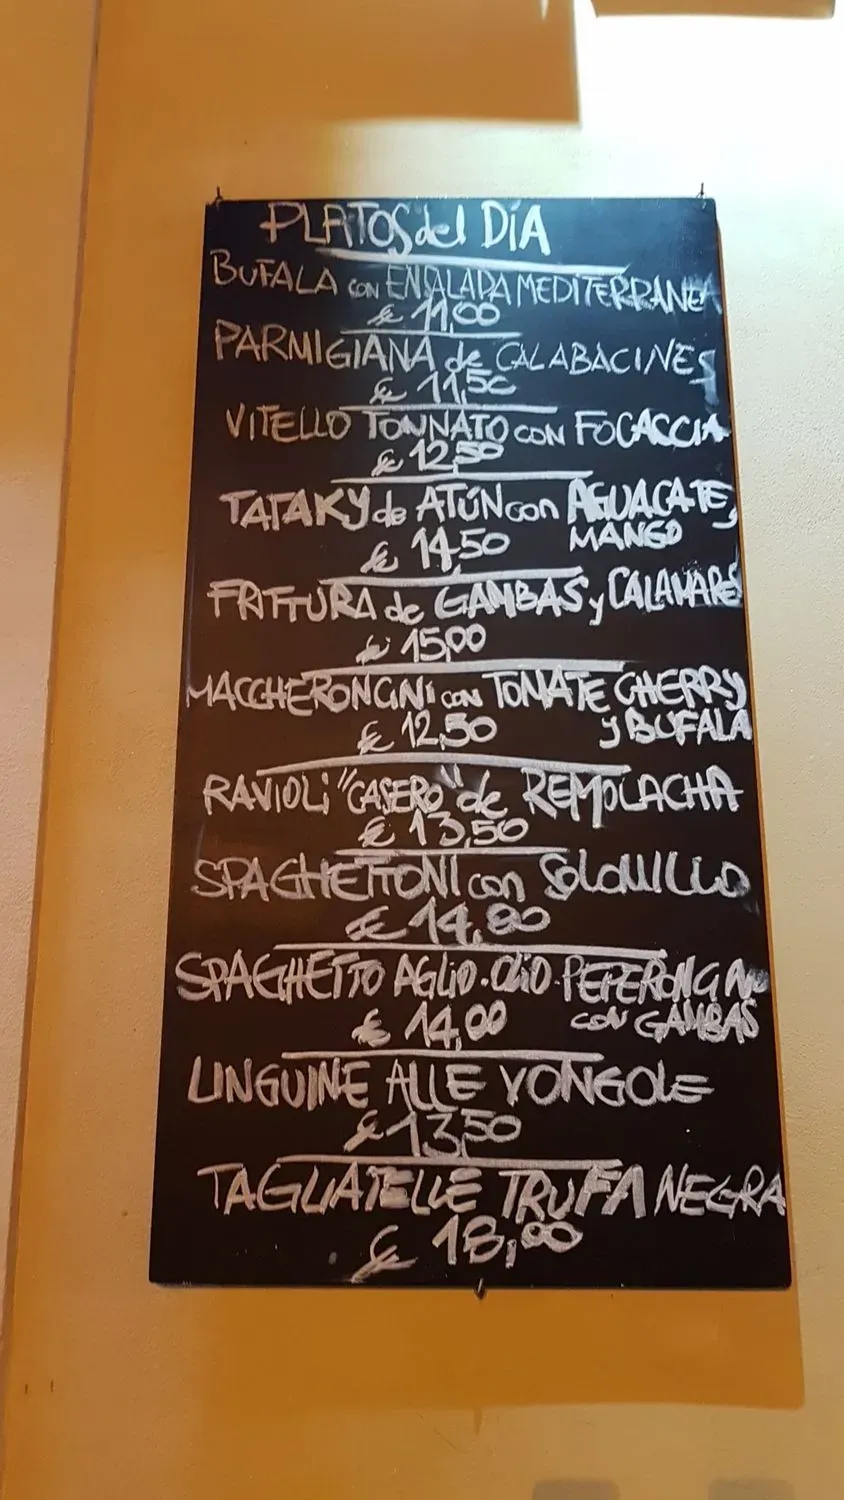 PLATOS del DÍA
BUFALA con ENSALADA MEDITERRANEA
€ 11,00
PARMIGIANA de CALABACINES
€ 11,50
VITELLO TONNATO CON FOCACCIA
€ 12,50
TATAKY de ATÚN con AGUACATE,
MANGO
€ 14,50
FRITTURA de GAMBAS y CALAMARES
€ 15,00
MACCHERONCINI CON TOMATE CHERRY
y BUFALA
€ 12,50
RAVIOLI "CASERO" de REMOLACHA
€ 13,50
SPAGHETTONI con SOLOMILLO
€ 14,80
SPAGHETTO AGLIO.OLIO PEPERONCINO
CON GAMBAS
€ 14,00
LINGUINE ALLE VONGOLE
€ 13,50
TAGLIATELLE TRUFA NEGRA
€ 18,00